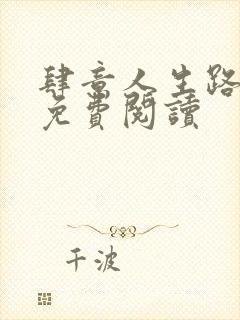 肆意人生路
免費閱讀
千波